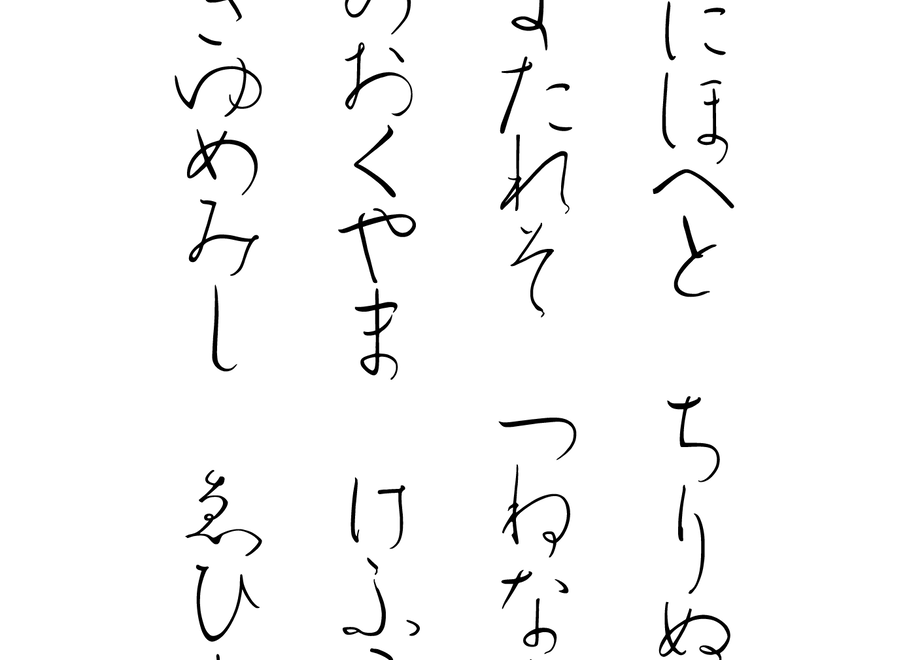 にほへと ちりぬ
よたれそ つねな
のおくやま けふ
きゆめみし ゑひ